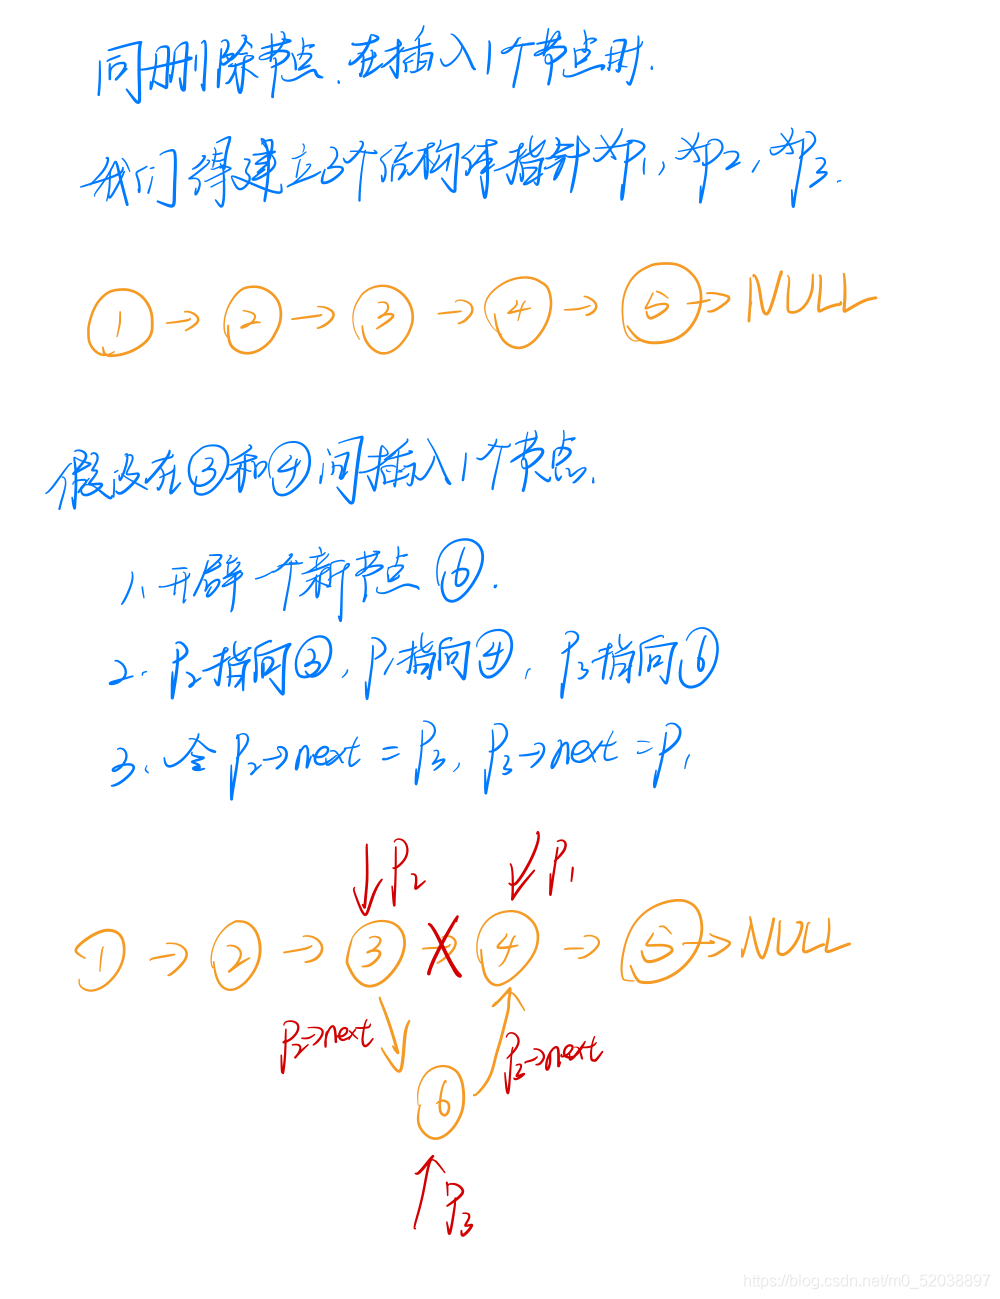 同删除节点.在插入1个节点时.
我们得建立3个结构体指针*p1,*p2,*p3.
① → ② → ③ → ④ → ⑤ → NULL
假设在③和④间插入1个节点.
1、开辟一个新节点⑥.
2. P2指向③,P1指向④,P3指向⑥
3、令P2→next = P3, P3→next = P1
P2 P1
① → ② → ③ → ④ → ⑤ → NULL
P2→next P3→next
⑥
P3
https://blog.csdn.net/m0_52038897